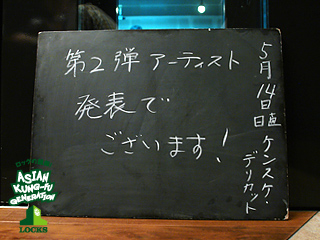 第2弾 アーティスト
発表で
ございます!
5月14日
日直 ケンスケ・デリカット
ASIAN
KUNG-FU
GENERATION
LOCKS